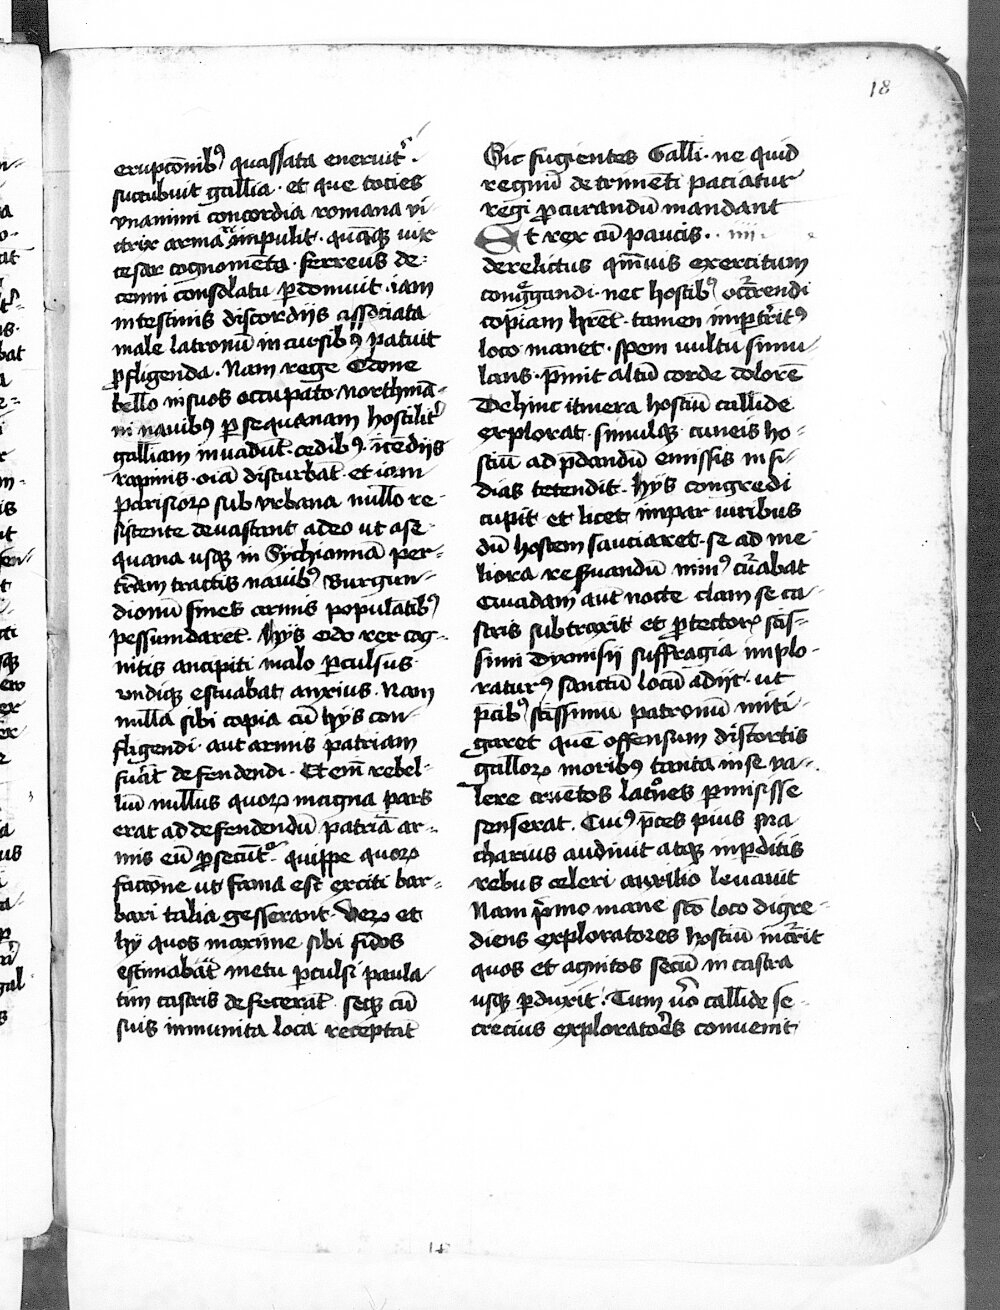 18
erupc̄onibꝰ quassata eneruit᷑.
succubuit gallia · et que tocies
vnanimi concordia romana vi
ctrix arma impulit · quāqꝫ iur
cesar cognomēto · ferreus de-
cenni consolatu ꝑdomuit · iam
intestinis discordijs associata
male latronū in cursibꝰ patuit
ꝓfligenda . Nam rege Odone
bello in suos occupato Northmā-
ni nauibꝰ ꝑ sequanam hostilit᷑
galliam inuadūt · cedibꝰ · īcēdijs
rapinis · oīa disturbāt · et iam
parisioꝝ sub vrbana nullo re-
sistente deuastant adeo ut a se-
quana usqꝫ in Sychiannā per-
tīam tractis nauibꝰ Burgun-
dionū fines armis populātibꝰ
pessumdaret . Hijs Odo rex cog-
nitis ancipiti malo ꝑculsus
vndiqꝫ estuabat anxius . Nam
nulla sibi copia cū hijs con-
fligendi · aut armis patriam
fuāt defendendi . Et em̄ rebel-
liū nullus quoꝝ magna pars
erat ad defendendū patriā ar-
mis eū ꝓsecūt᷑ . quippe quoꝝ
faccōne ut fama est exciti bar-
bari talia gesserant . Veꝝ et
hij quos maxime sibi fidos
estimabāt metu ꝑculsi paula
tim castris defecerāt · seqꝫ cū
suis inmunita loca receptāt
Sic fugientes Galli · ne quid
regnū detrimēti paciatur
regi ꝓcurandū mandant
Et rex cū paucis . . iiii .
derelictus qm̄uis exercitum
congͣgandi · nec hostibꝰ occ̄rendi
copiam hr̄et · tamen impt̄ritꝰ
loco manet · spem uultu simu-
lans · p̄mit altū corde dolorē
Dehinc itinera hostiū callide
explorat · simulqꝫ cuneis ho-
stiū ad p̄dandū emissis insi-
dias tetendit . hijs congredi
cupit et licet impar uiribus
dū hostem sauciaret · se ad me
liora res̄uandū minꝰ cūabat
Quadam aut nocte clam se ca-
stris subtraxit et ꝓtectoꝝ scīs-
simi Dyonisij suffragia implo-
raturꝰ sanctū locū adijt · ut
p̄cibꝰ scīssimū patronū miti-
garet quē offensum distortis
galloꝝ moribꝰ tanta in se va-
lere cruētos latn̄es ꝑmisisse
senserat . Cuiꝰ p̄ces pius Ma
charius audiuit atqꝫ inꝑditis
rebus celeri auxilio leuauit
Nam p̄mo mane scō loco digre-
diens exploratores hostiū inc̄rit
quos et agnitos secū in castra
usqꝫ ꝑduxit . Tum v̄o callide se-
crecius exploratores conuenit